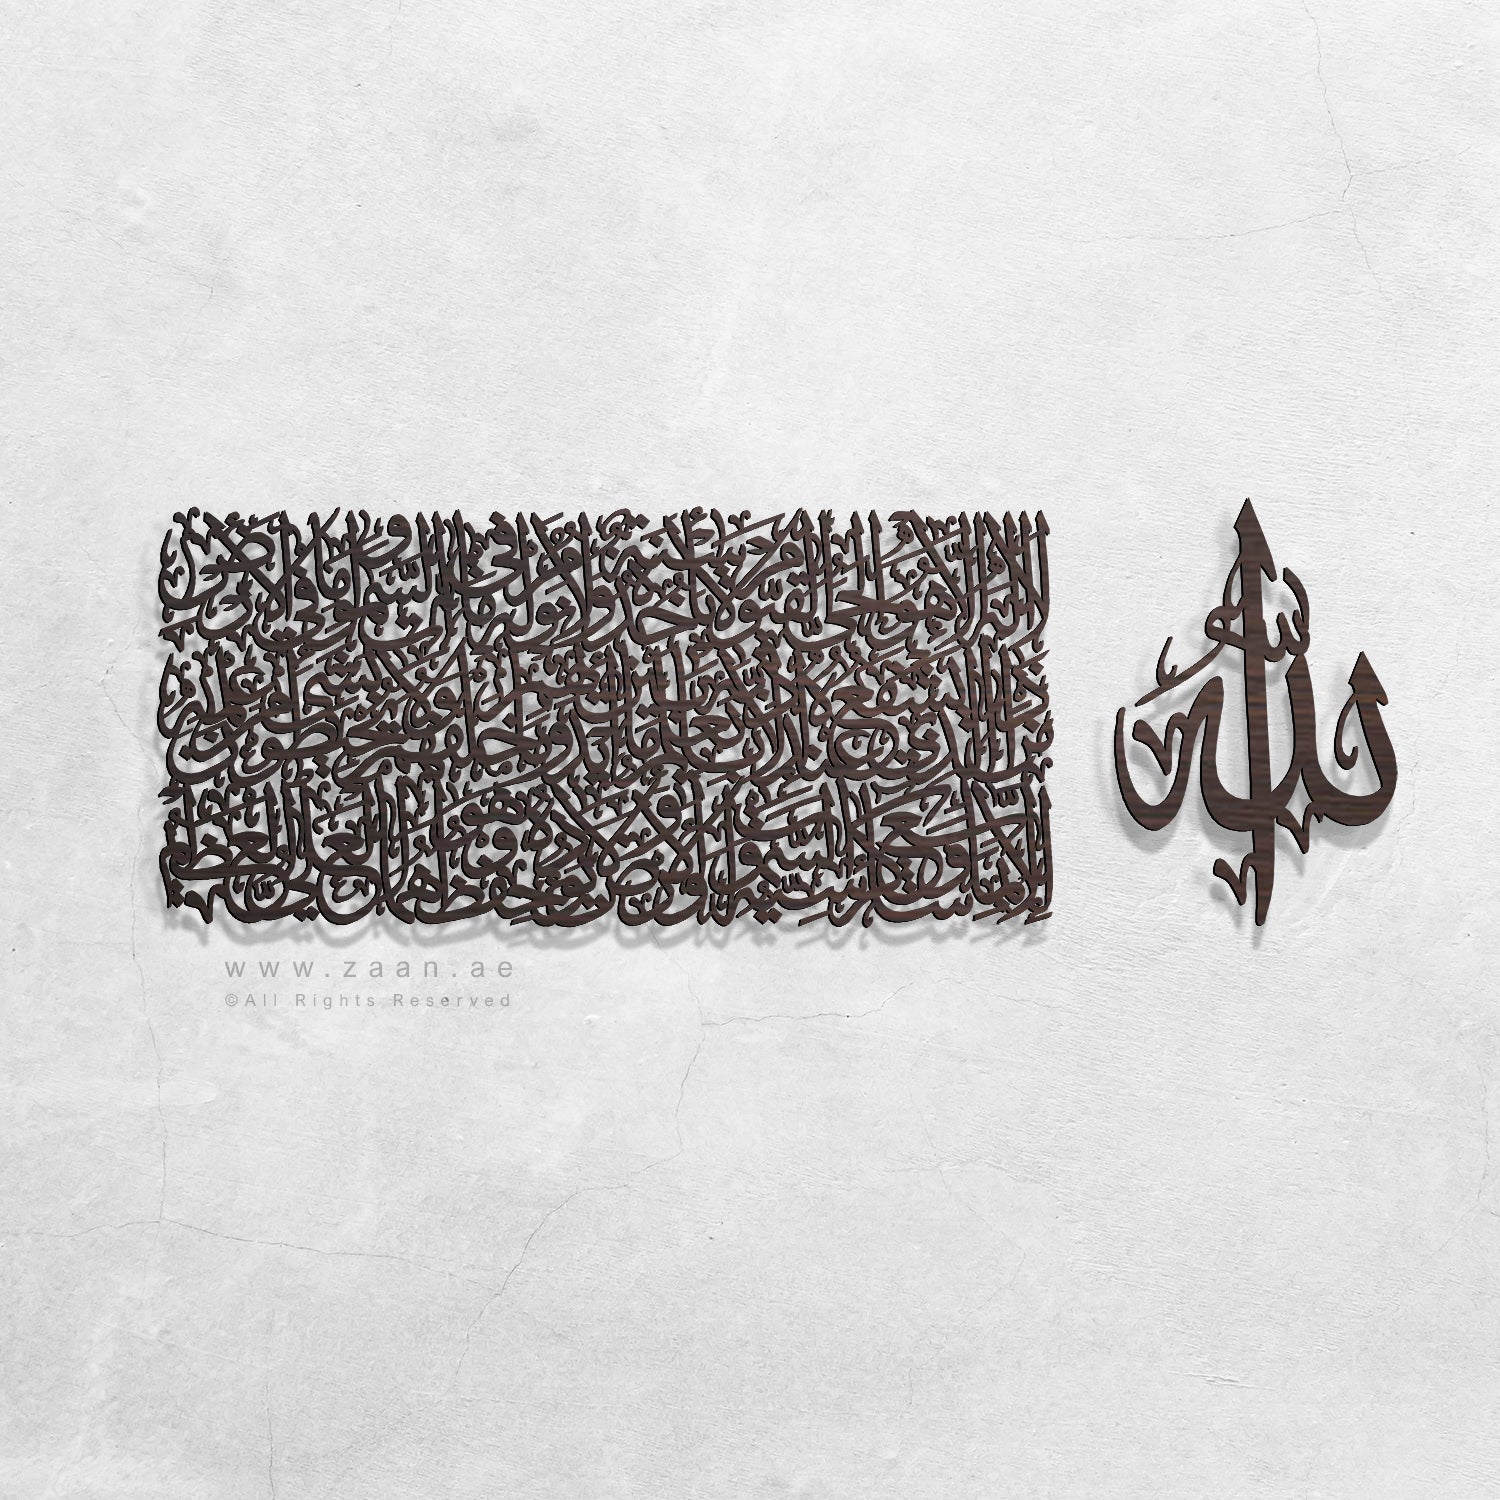 الله
الله لا إله إلا هو الحي القيوم لا تأخذه سنة ولا نوم له ما في السموات وما في الأرض
من ذا الذي يشفع عنده إلا بإذنه يعلم ما بين أيديهم وما خلفهم ولا يحيطون بشيء من علمه
إلا بما شاء وسع كرسيه السموات والأرض ولا يؤده حفظهما وهو العلي العظيم
www.zaan.ae
©All Rights Reserved